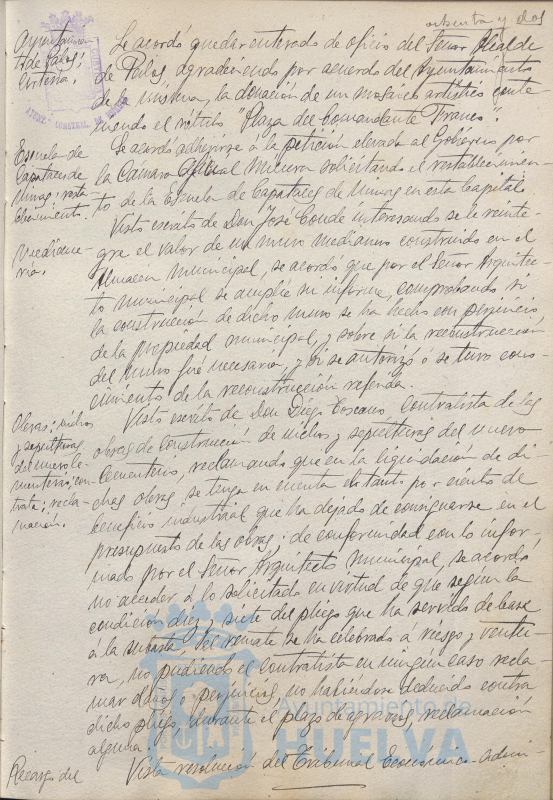 ochenta y dos
Ayuntamien
to de Palos;
cortesía.
Se acordó quedar enterado de oficio del Señor Alcalde
de Palos, agradeciendo por acuerdo del Ayuntamiento
de la misma, la donación de un mosáico artístico conte
niendo el rótulo "Plaza del Comandante Franco".
Escuela de
Capataces de
Minas; resta
blecimiento.
Se acordó adherirse a la petición elevada al Gobierno por
la Cámara Oficial Minera solicitando el restablecimien
to de la Escuela de Capataces de Minas en esta Capital.
Mediane-
ría.
Visto escrito de Don José Conde interesando se le reinte-
gre el valor de un muro medianero construido en el
Almacen Municipal, se acordó que por el Señor Arquitec-
to municipal se amplíe su informe, comprobando si
la construcción de dicho muro se ha hecho con perjuicio
de la propiedad municipal, y sobre si la reconstrucción
del muro fué necesaria, y si se autorizó o se tuvo cono-
cimiento de la reconstrucción referida.
Obras; nichos
y sepulturas
del nuevo Ce-
menterio; con
trata; recla-
mación.
Visto escrito de Don Diego Toscano, contratista de las
obras de construcción de nichos y sepulturas del nuevo
Cementerio, reclamando que en la liquidación de di-
chas obras se tenga en cuenta el tanto por ciento de
beneficio industrial que ha dejado de consignarse en el
presupuesto de las obras; de conformidad con lo infor-
mado por el Señor Arquitecto municipal, se acordó
no acceder a lo solicitado en virtud de que según la
condición diez y siete del pliego que ha servido de base
á la subasta, el remate se ha celebrado a riesgo y ventu-
ra, no pudiendo el contratista en ningún caso recla-
mar daños o perjuicios, no habiéndose deducido contra
dicho pliego, durante el plazo de agravios, reclamación
alguna.
Recargo del
Vista resolución del Tribunal Económico-Admi-
Ayuntamiento de
HUELVA